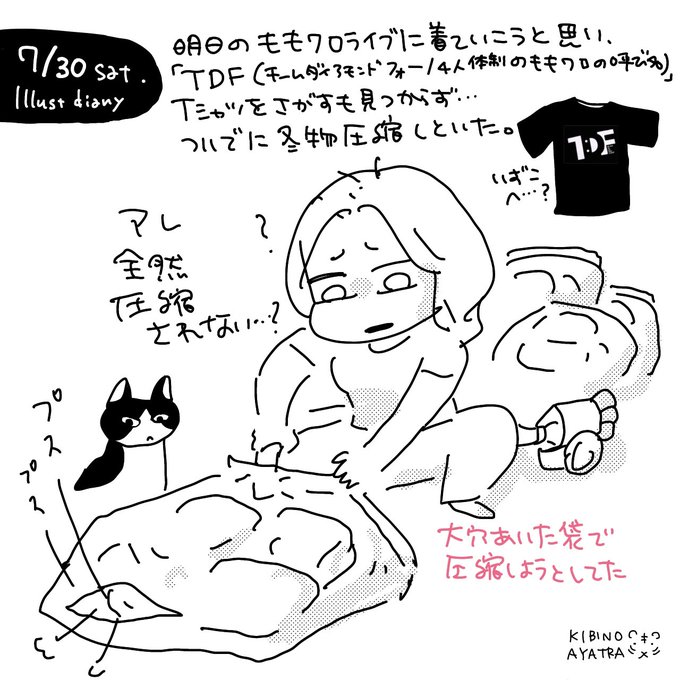 7/30 sat.
Illust diary
明日のももクロライブに着ていこうと思い、
「TDF(チームダイアモンドフォー/4人体制のももクロの呼び名)」
Tシャツをさがすも見つからず…
ついでに冬物圧縮しといた。
TDF
いずこ
へ…?
アレ?
全然
圧縮
されない…?
プス
プス
大穴あいた袋で
圧縮しようとしてた
KIBINO
AYATRA